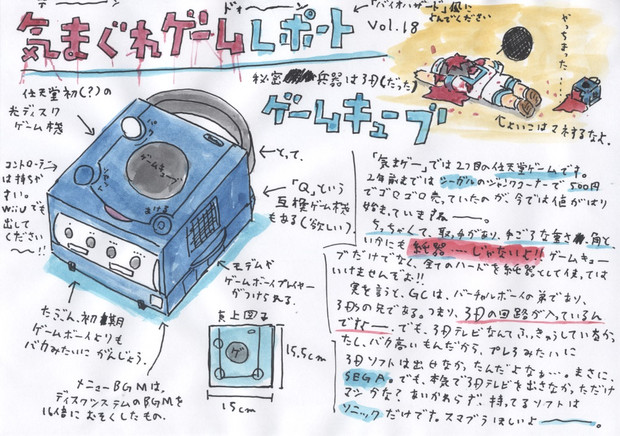 ドォーーン
「バイオハザード」風に
よんでください
気まぐれゲームレポート
Vol.18
やっちまった…
秘密兵器は3D(だった)
ゲームキューブ
心よいこはマネするなよ。
任天堂初(?)の
光ディスク
ゲーム機
コントローラーは
持ちやすい。
WiiUでも
出して
ください
〜〜!!
ゲームキューブ
←とって。
「Q」という
互換ゲーム機
もある(欲しい)
モデムや
ゲームボーイプレイヤー
がつけられる。
たぶん、初期
ゲームボーイよりも
バカみたいにがんじょう。
メニューBGMは、
ディスクシステムのBGMを
16倍におそくしたもの。
真上図
ゲ
15.5cm
15cm
「気まゲー」では2つ目の任天堂ゲームです。
2年前まではシーガルのジャンクコーナーで500円
でゴロゴロ売っていたのが、今では値がはり
始めていますねー。
ちっちゃくて、取っ手があり、手ごろな重さ、角と、
いかにも鈍器……じゃないよ!!ゲームキュー
ブだけでなく、全てのハードを鈍器として使っては
いけませんぞよ!!
実を言うと、GCは、バーチャルボーイの弟であり、
3DSの兄である。つまり、3Dの回路が入っているん
ですなー。でも、3Dテレビなんてふきゅうしている
たし、バカ高いもんだから、プレ3みたいに
3Dソフトは出せなかったんだよなぁ…。まさに、
SEGA。でも、本気で3Dテレビを出さなかっただけ
マシかな?あいかわらず、持ってるソフトは
ソニックだけです。スマブラほしいよー。